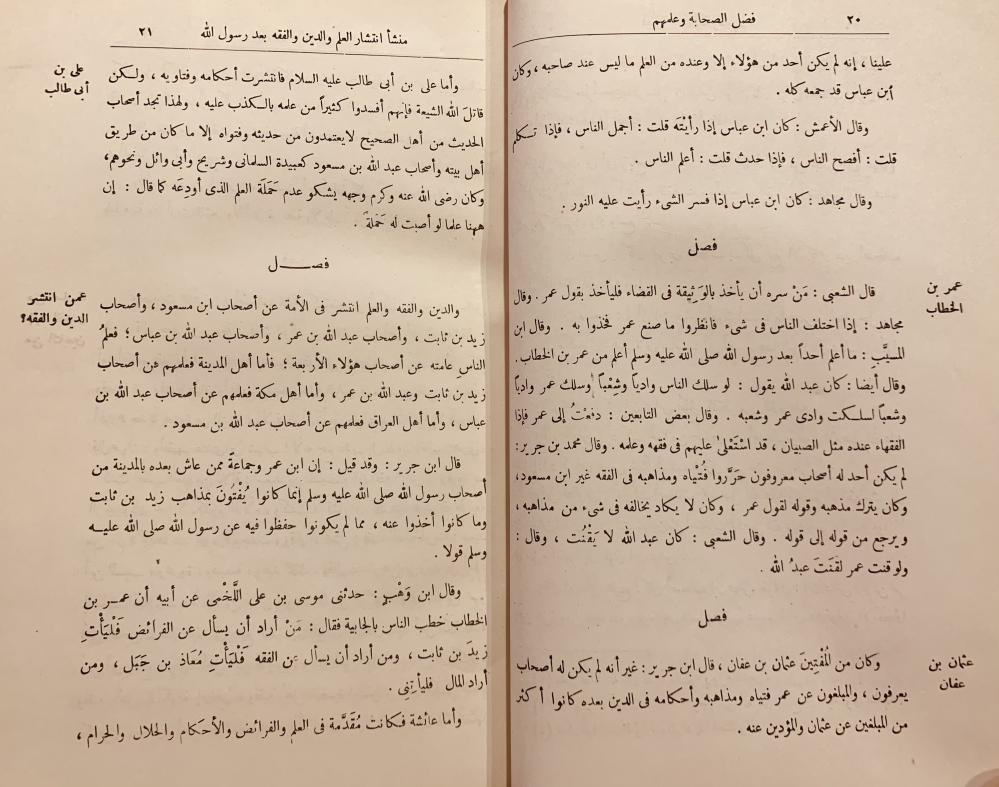 ٢٠
فضل الصحابة وعلمهم
علينا ، إنه لم يكن أحد من هؤلاء إلا وعنده من العلم ما ليس عند صاحبه ، وكان
ابن عباس قد جمعه كله .
وقال الأعمش : كان ابن عباس إذا رأيْتَه قلت : أجمل الناس ، فإذا تكلم
قلت : أفصح الناس ، فإذا حدث قلت : أعلم الناس .
وقال مجاهد : كان ابن عباس إذا فسر الشىء رأيت عليه النور .
فصل
عمر بن
الخطاب
قال الشعبى : مَنْ سره أن يأخذ بالوَثِيقة فى القضاء فليأخذ بقول عمر . وقال
مجاهد : إذا اختلف الناس فى شىء فانظروا ما صنع عمر فخذوا به . وقال ابن
المسيَّبِ : ما أعلم أحداً بعد رسول الله صلى الله عليه وسلم أعلم من عمر بن الخطاب .
وقال أيضا : كان عبد الله يقول : لو سلك الناس وادياً وشِعْباً وسلك عمر وادياً
وشعباً لسلكت وادى عمر وشعبه . وقال بعض التابعين : دفعْتُ إلى عمر فإذا
الفقهاء عنده مثل الصبيان ، قد اسْتَعْلىٰ عليهم فى فقهه وعلمه . وقال محمد بن جرير :
لم يكن أحد له أصحاب معروفون حَرَّروا فُتْياه ومذاهبه فى الفقه غير ابن مسعود ،
وكان يترك مذهبه وقوله لقول عمر ، وكان لا يكاد يخالفه فى شىء من مذاهبه ،
ويرجع من قوله إلى قوله . وقال الشعبى : كان عبد الله لا يَقْنُت ، وقال :
ولو قنت عمر لقَنَتَ عبدُ الله .
فصل
عثمان بن
عفان
وكان من المُفْتِينَ عثمان بن عفان ، قال ابن جرير : غير أنه لم يكن له أصحاب
يعرفون ، والمبلغون عن عمر فتياه ومذاهبه وأحكامه فى الدين بعده كانوا أكثر
من المبلغين عن عثمان والمؤدين عنه .
منشأ انتشار العلم والدين والفقه بعد رسول الله
٢١
على بن
أبى طالب
وأما على بن أبى طالب عليه السلام فانتشرت أحكامه وفتاويه ، ولكن
قاتلَ الله الشيعة فإنهم أفسدوا كثيراً من علمه بالكذب عليه ، ولهذا تجد أصحاب
الحديث من أهل الصحيح لايعتمدون من حديثه وفتواه إلا ما كان من طريق
أهل بيته وأصحاب عبد الله بن مسعود كعبيدة السلمانى وشريح وأبى وائل ونحوهم ،
وكان رضى الله عنه وكرم وجهه يشكو عدم حَمَلَة العلم الذى أودِعَه كما قال : إن
ههنا علما لو أصبت له حَمَلَةً .
فصــل
عمن انتشر
الدين والفقه؟
والدين والفقه والعلم انتشر فى الأمة عن أصحاب ابن مسعود ، وأصحاب
زيد بن ثابت ، وأصحاب عبد الله بن عمر ، وأصحاب عبد الله بن عباس ؛ فعلمُ
الناسِ عامته عن أصحاب هؤلاء الأربعة ؛ فأما أهل المدينة فعلمهم عن أصحاب
زيد بن ثابت وعبد الله بن عمر ، وأما أهل مكة فعلمهم عن أصحاب عبد الله بن
عباس ، وأما أهل العراق فعلمهم عن أصحاب عبد الله بن مسعود .
قال ابن جرير : وقد قيل : إن ابن عمر وجماعةً ممن عاش بعده بالمدينة من
أصحاب رسول الله صلى الله عليه وسلم إنما كانوا يُفْتُونَ بمذاهب زيد بن ثابت
وما كانوا أخذوا عنه ، مما لم يكونوا حفظوا فيه عن رسول الله صلى الله عليــه
وسلم قولا .
وقال ابن وَهْبٍ : حدثنى موسى بن على اللَّخْمى عن أبيه أن عمــر بن
الخطاب خطب الناس بالجابية فقال : مَنْ أراد أن يسأل عن الفرائض فَلْيَأْتِ
زيدَ بن ثابت ، ومن أراد أن يسأل عن الفقه فَلْيَأْتِ مُعَاذ بن جَبَل ، ومن
أراد المال فليأتِنِى .
وأما عائشة فكانت مُقَدَّمة فى العلم والفرائض والأحكام والحلال والحرام ،